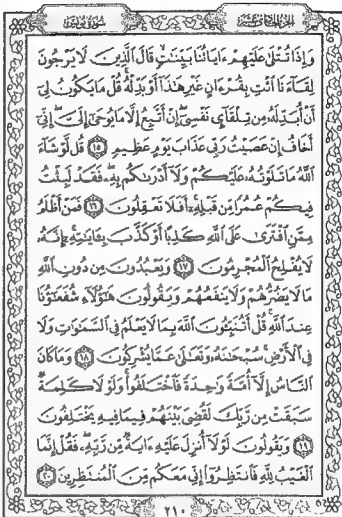 الجزء الحادي عشر سورة يونس
وَإِذَا تُتْلَىٰ عَلَيْهِمْ ءَايَاتُنَا بَيِّنَٰتٍ قَالَ ٱلَّذِينَ لَا يَرْجُونَ
لِقَآءَنَا ٱئْتِ بِقُرْءَانٍ غَيْرِ هَٰذَآ أَوْ بَدِّلْهُ قُلْ مَا يَكُونُ لِىٓ
أَنْ أُبَدِّلَهُۥ مِن تِلْقَآئِ نَفْسِىٓ إِنْ أَتَّبِعُ إِلَّا مَا يُوحَىٰٓ إِلَىَّ إِنِّىٓ
أَخَافُ إِنْ عَصَيْتُ رَبِّى عَذَابَ يَوْمٍ عَظِيمٍ ١٥ قُل لَّوْ شَآءَ
ٱللَّهُ مَا تَلَوْتُهُۥ عَلَيْكُمْ وَلَآ أَدْرَىٰكُم بِهِۦ فَقَدْ لَبِثْتُ
فِيكُمْ عُمُرًا مِّن قَبْلِهِۦٓ أَفَلَا تَعْقِلُونَ ١٦ فَمَنْ أَظْلَمُ
مِمَّنِ ٱفْتَرَىٰ عَلَى ٱللَّهِ كَذِبًا أَوْ كَذَّبَ بِـَٔايَٰتِهِۦٓ إِنَّهُۥ
لَا يُفْلِحُ ٱلْمُجْرِمُونَ ١٧ وَيَعْبُدُونَ مِن دُونِ ٱللَّهِ
مَا لَا يَضُرُّهُمْ وَلَا يَنفَعُهُمْ وَيَقُولُونَ هَٰٓؤُلَآءِ شُفَعَٰٓؤُنَا
عِندَ ٱللَّهِ قُلْ أَتُنَبِّـُٔونَ ٱللَّهَ بِمَا لَا يَعْلَمُ فِى ٱلسَّمَٰوَٰتِ وَلَا
فِى ٱلْأَرْضِ سُبْحَٰنَهُۥ وَتَعَٰلَىٰ عَمَّا يُشْرِكُونَ ١٨ وَمَا كَانَ
ٱلنَّاسُ إِلَّآ أُمَّةً وَٰحِدَةً فَٱخْتَلَفُوا۟ وَلَوْلَا كَلِمَةٌ
سَبَقَتْ مِن رَّبِّكَ لَقُضِىَ بَيْنَهُمْ فِيمَا فِيهِ يَخْتَلِفُونَ
١٩ وَيَقُولُونَ لَوْلَآ أُنزِلَ عَلَيْهِ ءَايَةٌ مِّن رَّبِّهِۦ فَقُلْ إِنَّمَا
ٱلْغَيْبُ لِلَّهِ فَٱنتَظِرُوٓا۟ إِنِّى مَعَكُم مِّنَ ٱلْمُنتَظِرِينَ ٢٠
٢١٠